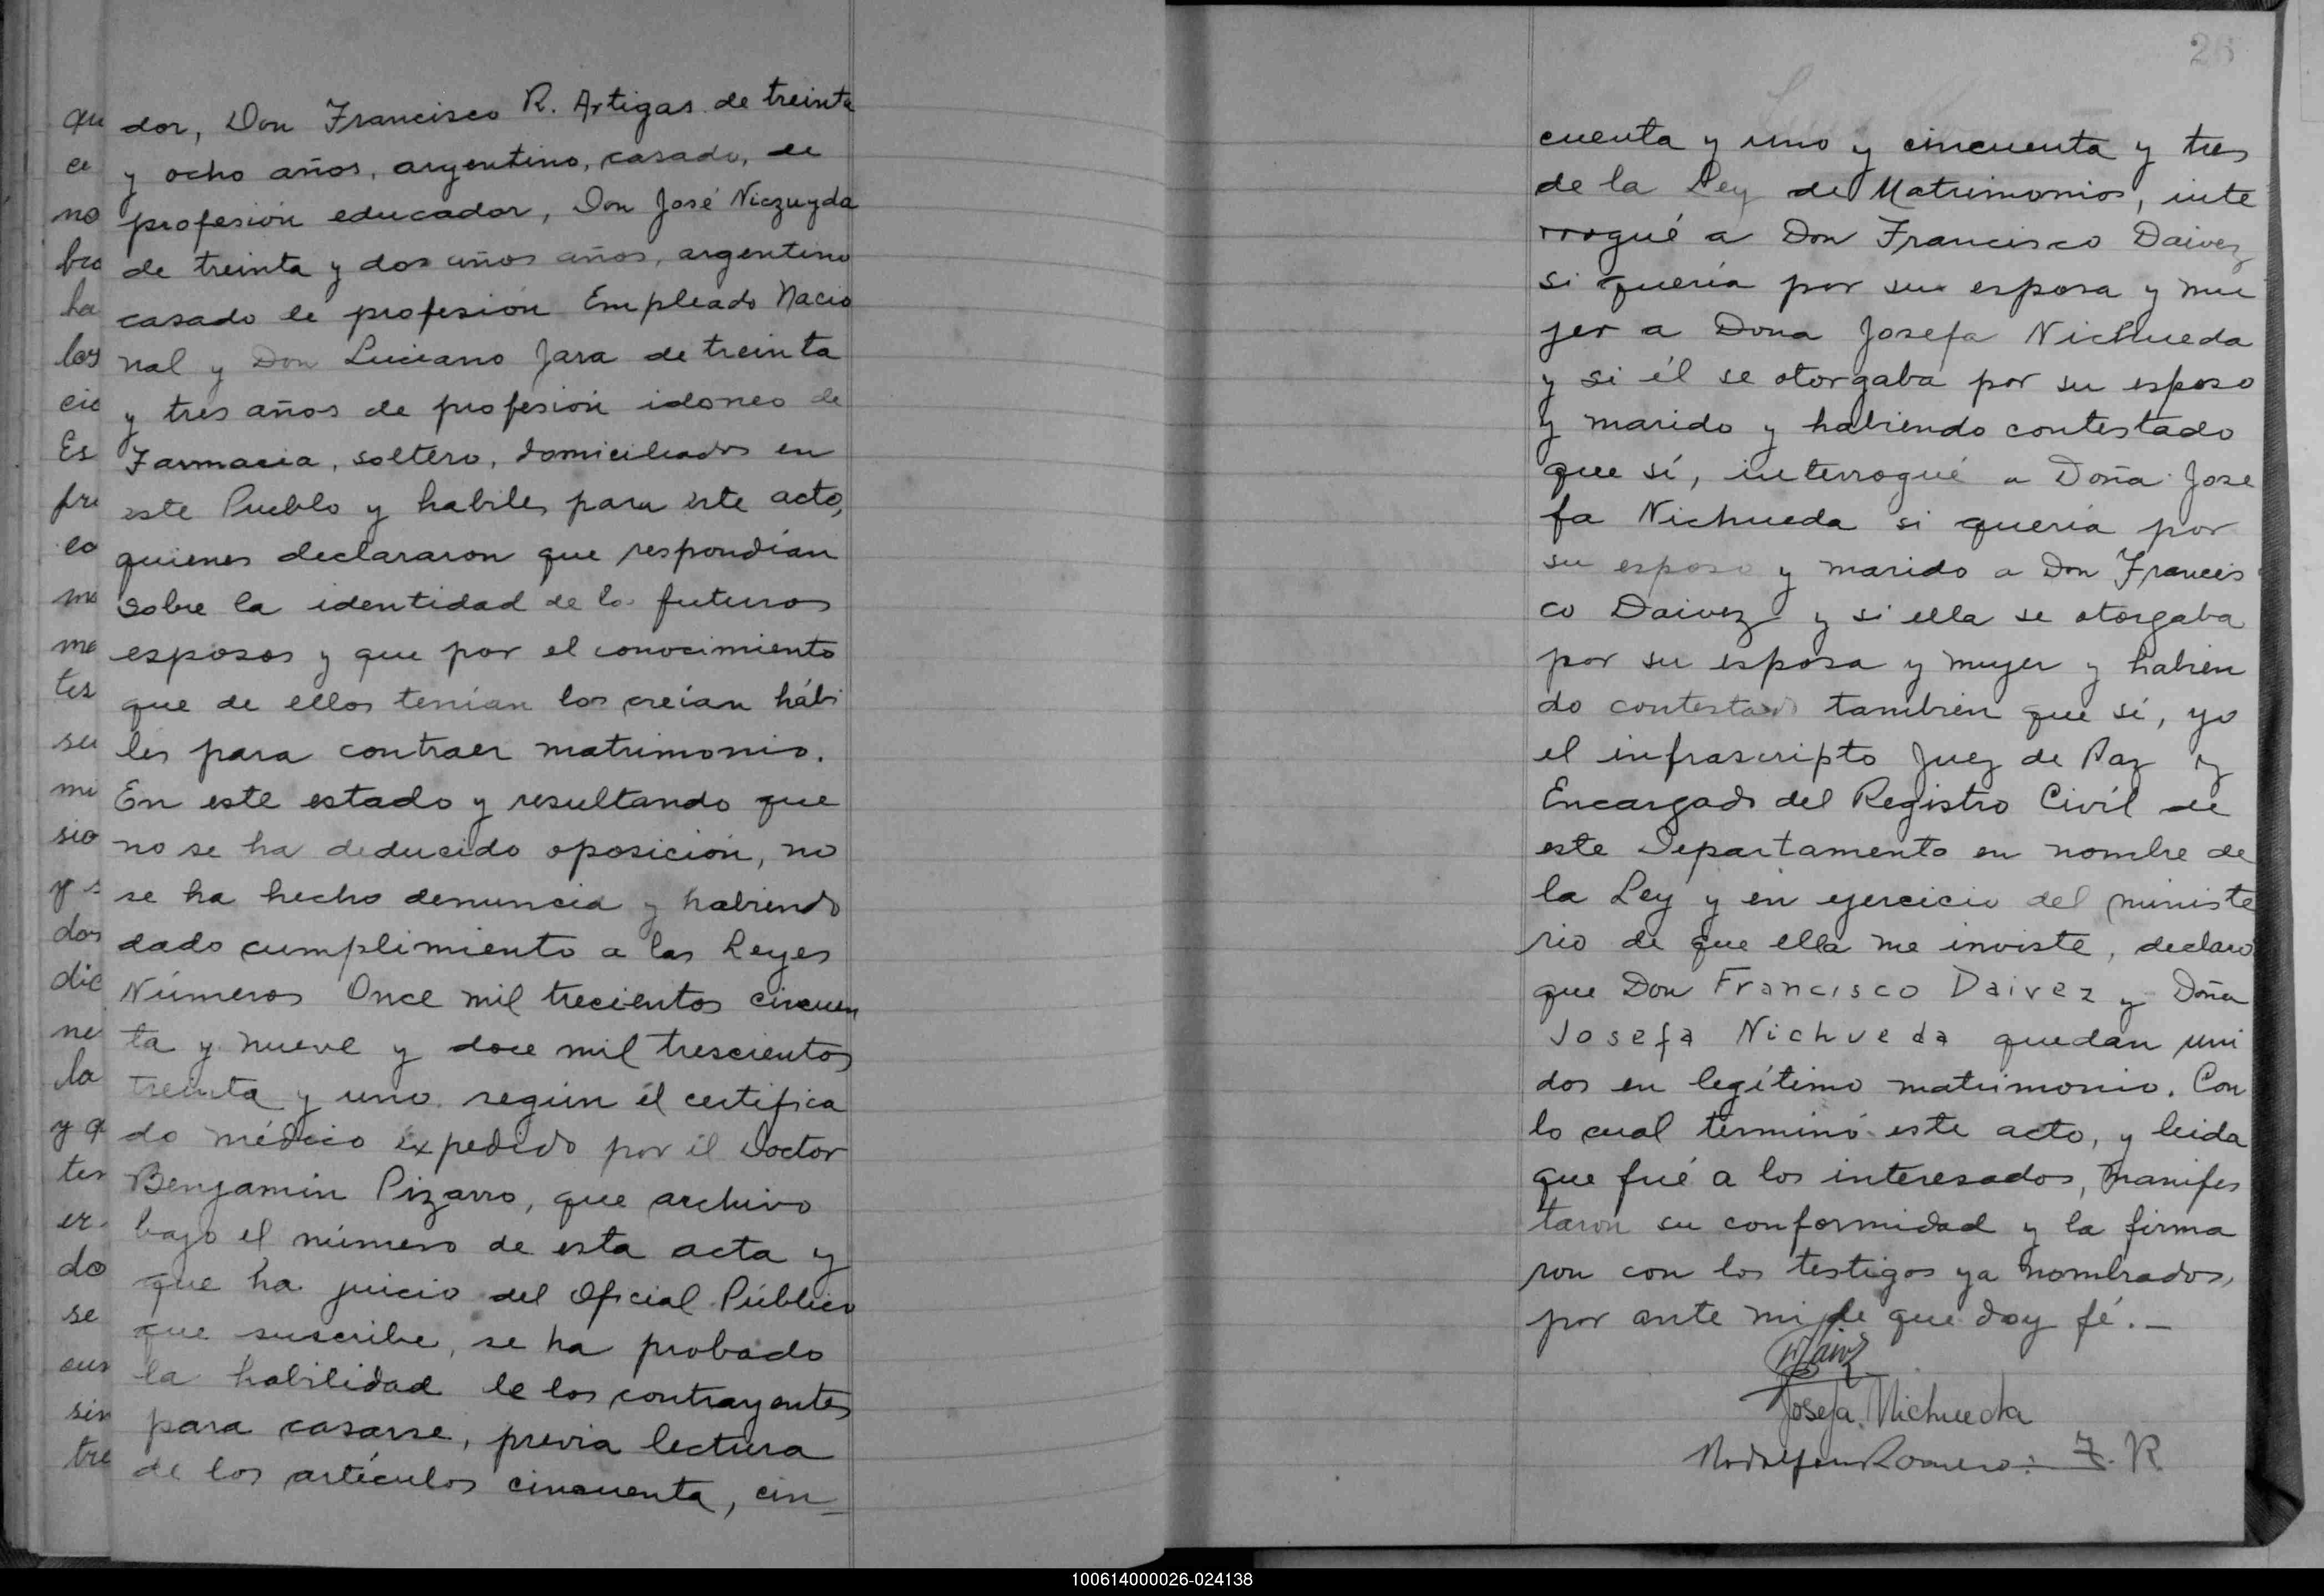 dor, Don Francisco R. Artigas de treinta
y ocho años, argentino, casado, de
profesión educador, Don José Niczuyda
de treinta y dos años años, argentino
casado de profesión Empleado Nacio
nal y Don Luciano Jara de treinta
y tres años de profesión idoneo de
Farmacia, soltero, domiciliados en
este Pueblo y habiles para este acto,
quienes declararon que respondían
sobre la identidad de los futuros
esposos y que por el conocimiento
que de ellos tenían los creían hábi
les para contraer matrimonio.
En este estado y resultando que
no se ha deducido oposición, no
se ha hecho denuncia y habiendo
dado cumplimiento a las Leyes
Números Once mil trecientos cincuen
ta y nueve y doce mil trescientos
treinta y uno según el certifica
do médico expedido por el Doctor
Benjamín Pizarro, que archivo
bajo el número de esta acta y
que ha juicio del Oficial Público
que suscribe, se ha probado
la habilidad de los contrayentes
para casarse, previa lectura
de los artículos cincuenta, cin
qu
ce
no
bro
ha
los
cio
Es
fre
co
me
me
tes
su
mi
sio
y s
dos
dic
ne
la
y q
tes
er
do
se
cur
sin
tre
26
cuenta y uno y cincuenta y tres
de la Ley de Matrimonios, inte
rrogué a Don Francisco Daivez
si quería por su esposa y mu
jer a Dona Josefa Nichueda
y si él se otorgaba por su esposo
y marido y habiendo contestado
que sí, interrogué a Doña Jose
fa Nichueda si quería por
su esposo y marido a Don Francis
co Daivez y si ella se otorgaba
por su esposa y mujer y habien
do contestado también que sí, yo
el infrascripto Juez de Paz y
Encargado del Registro Civíl de
este Departamento en nombre de
la Ley y en ejercicio del ministe
rio de que ella me inviste, declaro
que Don Francisco Daivez y Doña
Josefa Nichueda quedan uni
dos en legítimo matrimonio. Con
lo cual terminó este acto, y leida
que fué a los interesados, manifes
taron su conformidad y la firma
ron con los testigos ya nombrados,
por ante mi de que doy fé. —
Josefa Nichueda
Romero: F. R
100614000026-024138